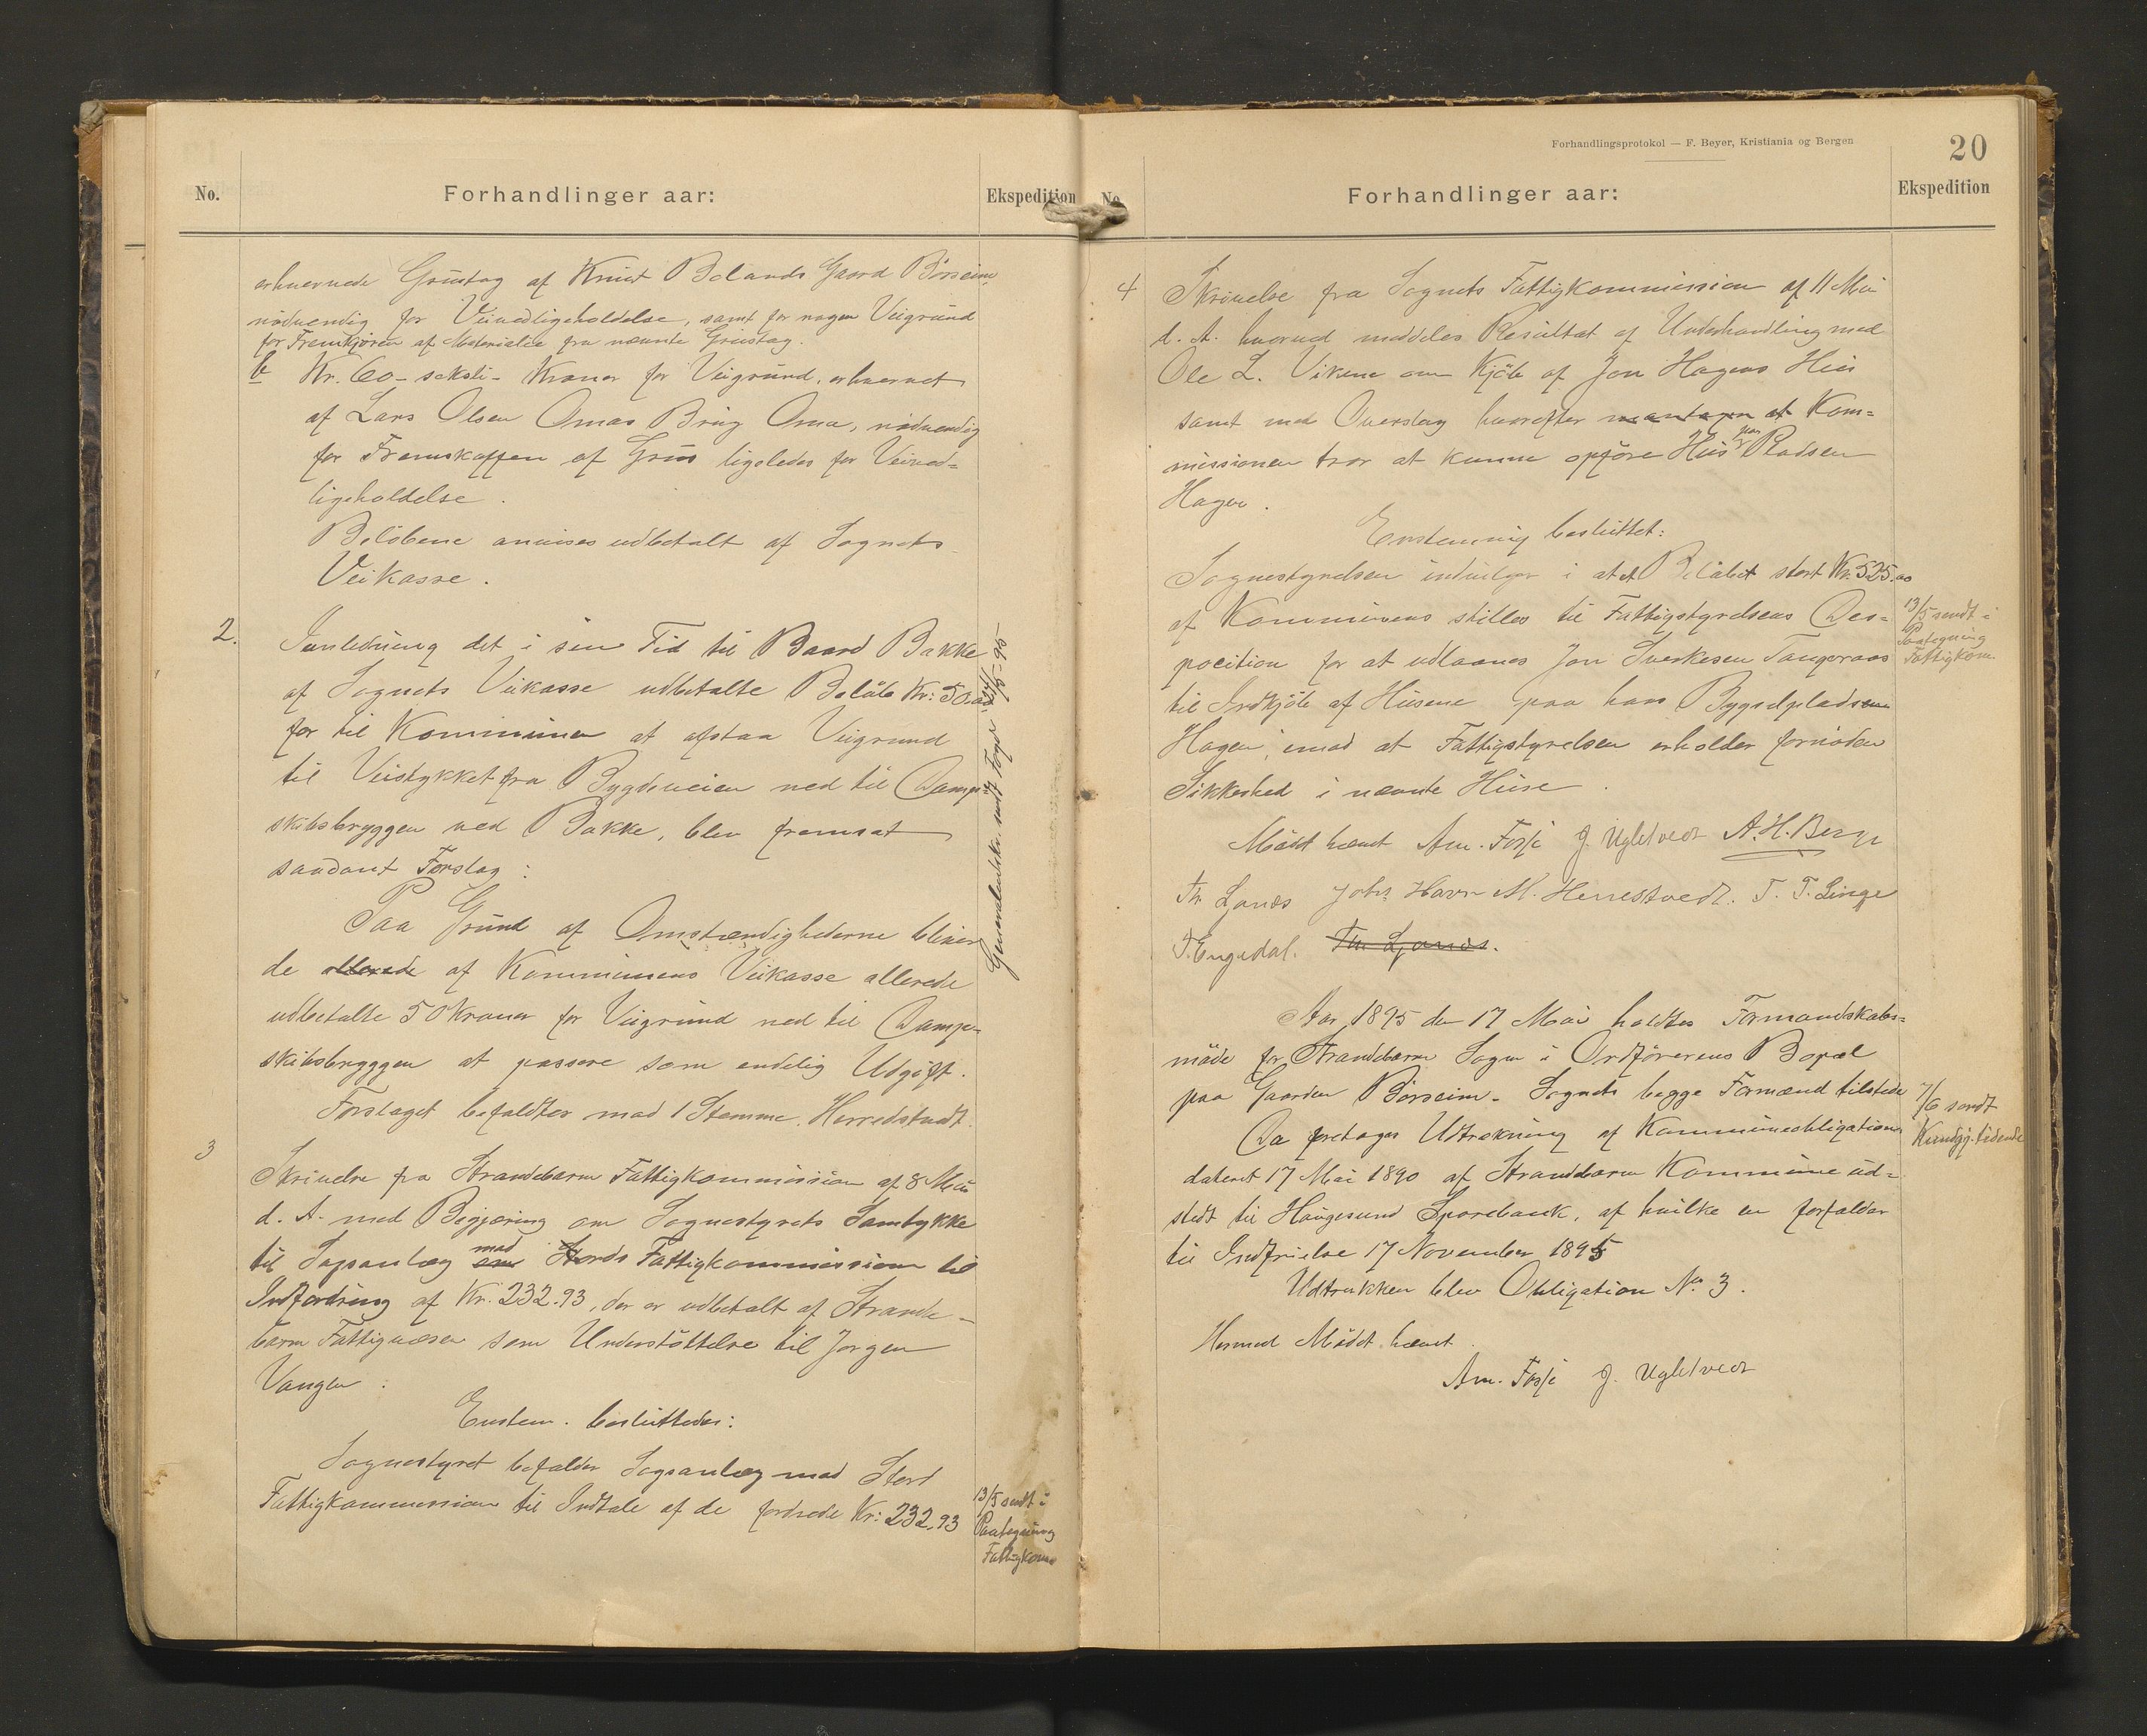 No.
Forhandlinger aar:
Ekspedition
erhvervede Grustag af Knut Belands Gaard Börseim,
nödvendig for Veivedligeholdelse, samt for nogen Veigrund
for Fremkjören af Materialier fra nævnte Grustag.
b Kr. 60 - seksti - Kroner for Veigrund, erhvervet
af Lars Olsen Omas Brug Oma, nödvendig
for Fremskaffen af Grus ligeledes for Veived=
ligeholdelse.
Belöbene anvises udbetalt af Sognets
Veikasse.
2. Innledning det i sin Tid til Baard Bakke
af Sognets Veikasse udbetalte Belöb Kr: 50.00
for til Kommunen at afstaa Veigrund
til Veistykket fra Bygdeveien ned til Damp=
skibsbryggen ved Bakke, blev fremsat
saadant Forslag:
Paa Grund af Omstændighederne bliver
de allerede af Kommunens Veikasse allerede
udbetalte 50 Kroner for Veigrund ned til Damp=
skibsbrygggen at passere som endelig Udgift.
Forslaget befaldtes mod 1 Stemme. Herredstvedt.
3
Skrivelse fra Strandebarm Fattigkommission af 8 Mai
d. A. med Begjæring om Sognestyrets Samtykke
til Sagsanlæg mod Stords Fattigkommission til
Indfordring af Kr. 232.93, der er udbetalt af Strande-
barm Fattigvæsen som Understöttelse til Jørgen
Vangen.
Enstem. besluttedes:
Sognestyret befalder Sagsanlæg mod Stord
Fattigkommission til Indtale af de fordrede Kr: 232,93
13/5 sendt i
Paategning
Fattigkom
Forhandlingsprotokol — F. Beyer, Kristiania og Bergen
20
No.
Forhandlinger aar:
Ekspedition
4 Skrivelse fra Sognets Fattigkommission af 11 Mai
d. A. hvorved meddeles Resultat af Underhandling med
Ole L. Vikene om Kjöb af Jon Hagens Hus
samt med Overslag hvorefter at Kom=
missionen tror at kunne opföre Hus paa Pladsen
Hagen.
Enstemmig besluttet:
Sognestyrelsen indvilger i at et Belöbet stort Kr. 525.00
af Kommunens stilles til Fattigstyrelsens Des=
pocition for at udlaanes Jon Sverkesen Tangeraas
til Indkjöb af Husene paa hans Bygselpladsen
Hagen, imod at Fattigstyrelsen erholder fornöden
Sikkerhed i nævnte Huse.
13/5 sendt i
Paategning
Fattigkom.
Mödet hævet Am. Fosse J. Ugletvedt A. H. Berge
Th Lønes Johs Havn M. Herrestvedt. T. T. Linge
T. Engedal. Th Lønes.
Aar 1895 den 17 Mai holdtes Formandskabs=
möde for Strandebarm Sogn i Ordförerens Bopæl
paa Gaarden Börseim. Sognets begge Formænd tilstede
Da foretoges Udtrækning af Kommuneobligation
dateret 17 Mai 1890 af Strandebarm Kommune ud=
stedt til Haugesund Sparebank, af hvilke en forfalder
til Indfrielse 17 November 1895
Udtrukken blev Obligation No. 3.
7/6 sendt
Kundgj. tidende
Hermed Mödet hævet.
Am. Fosse J. Ugletvedt